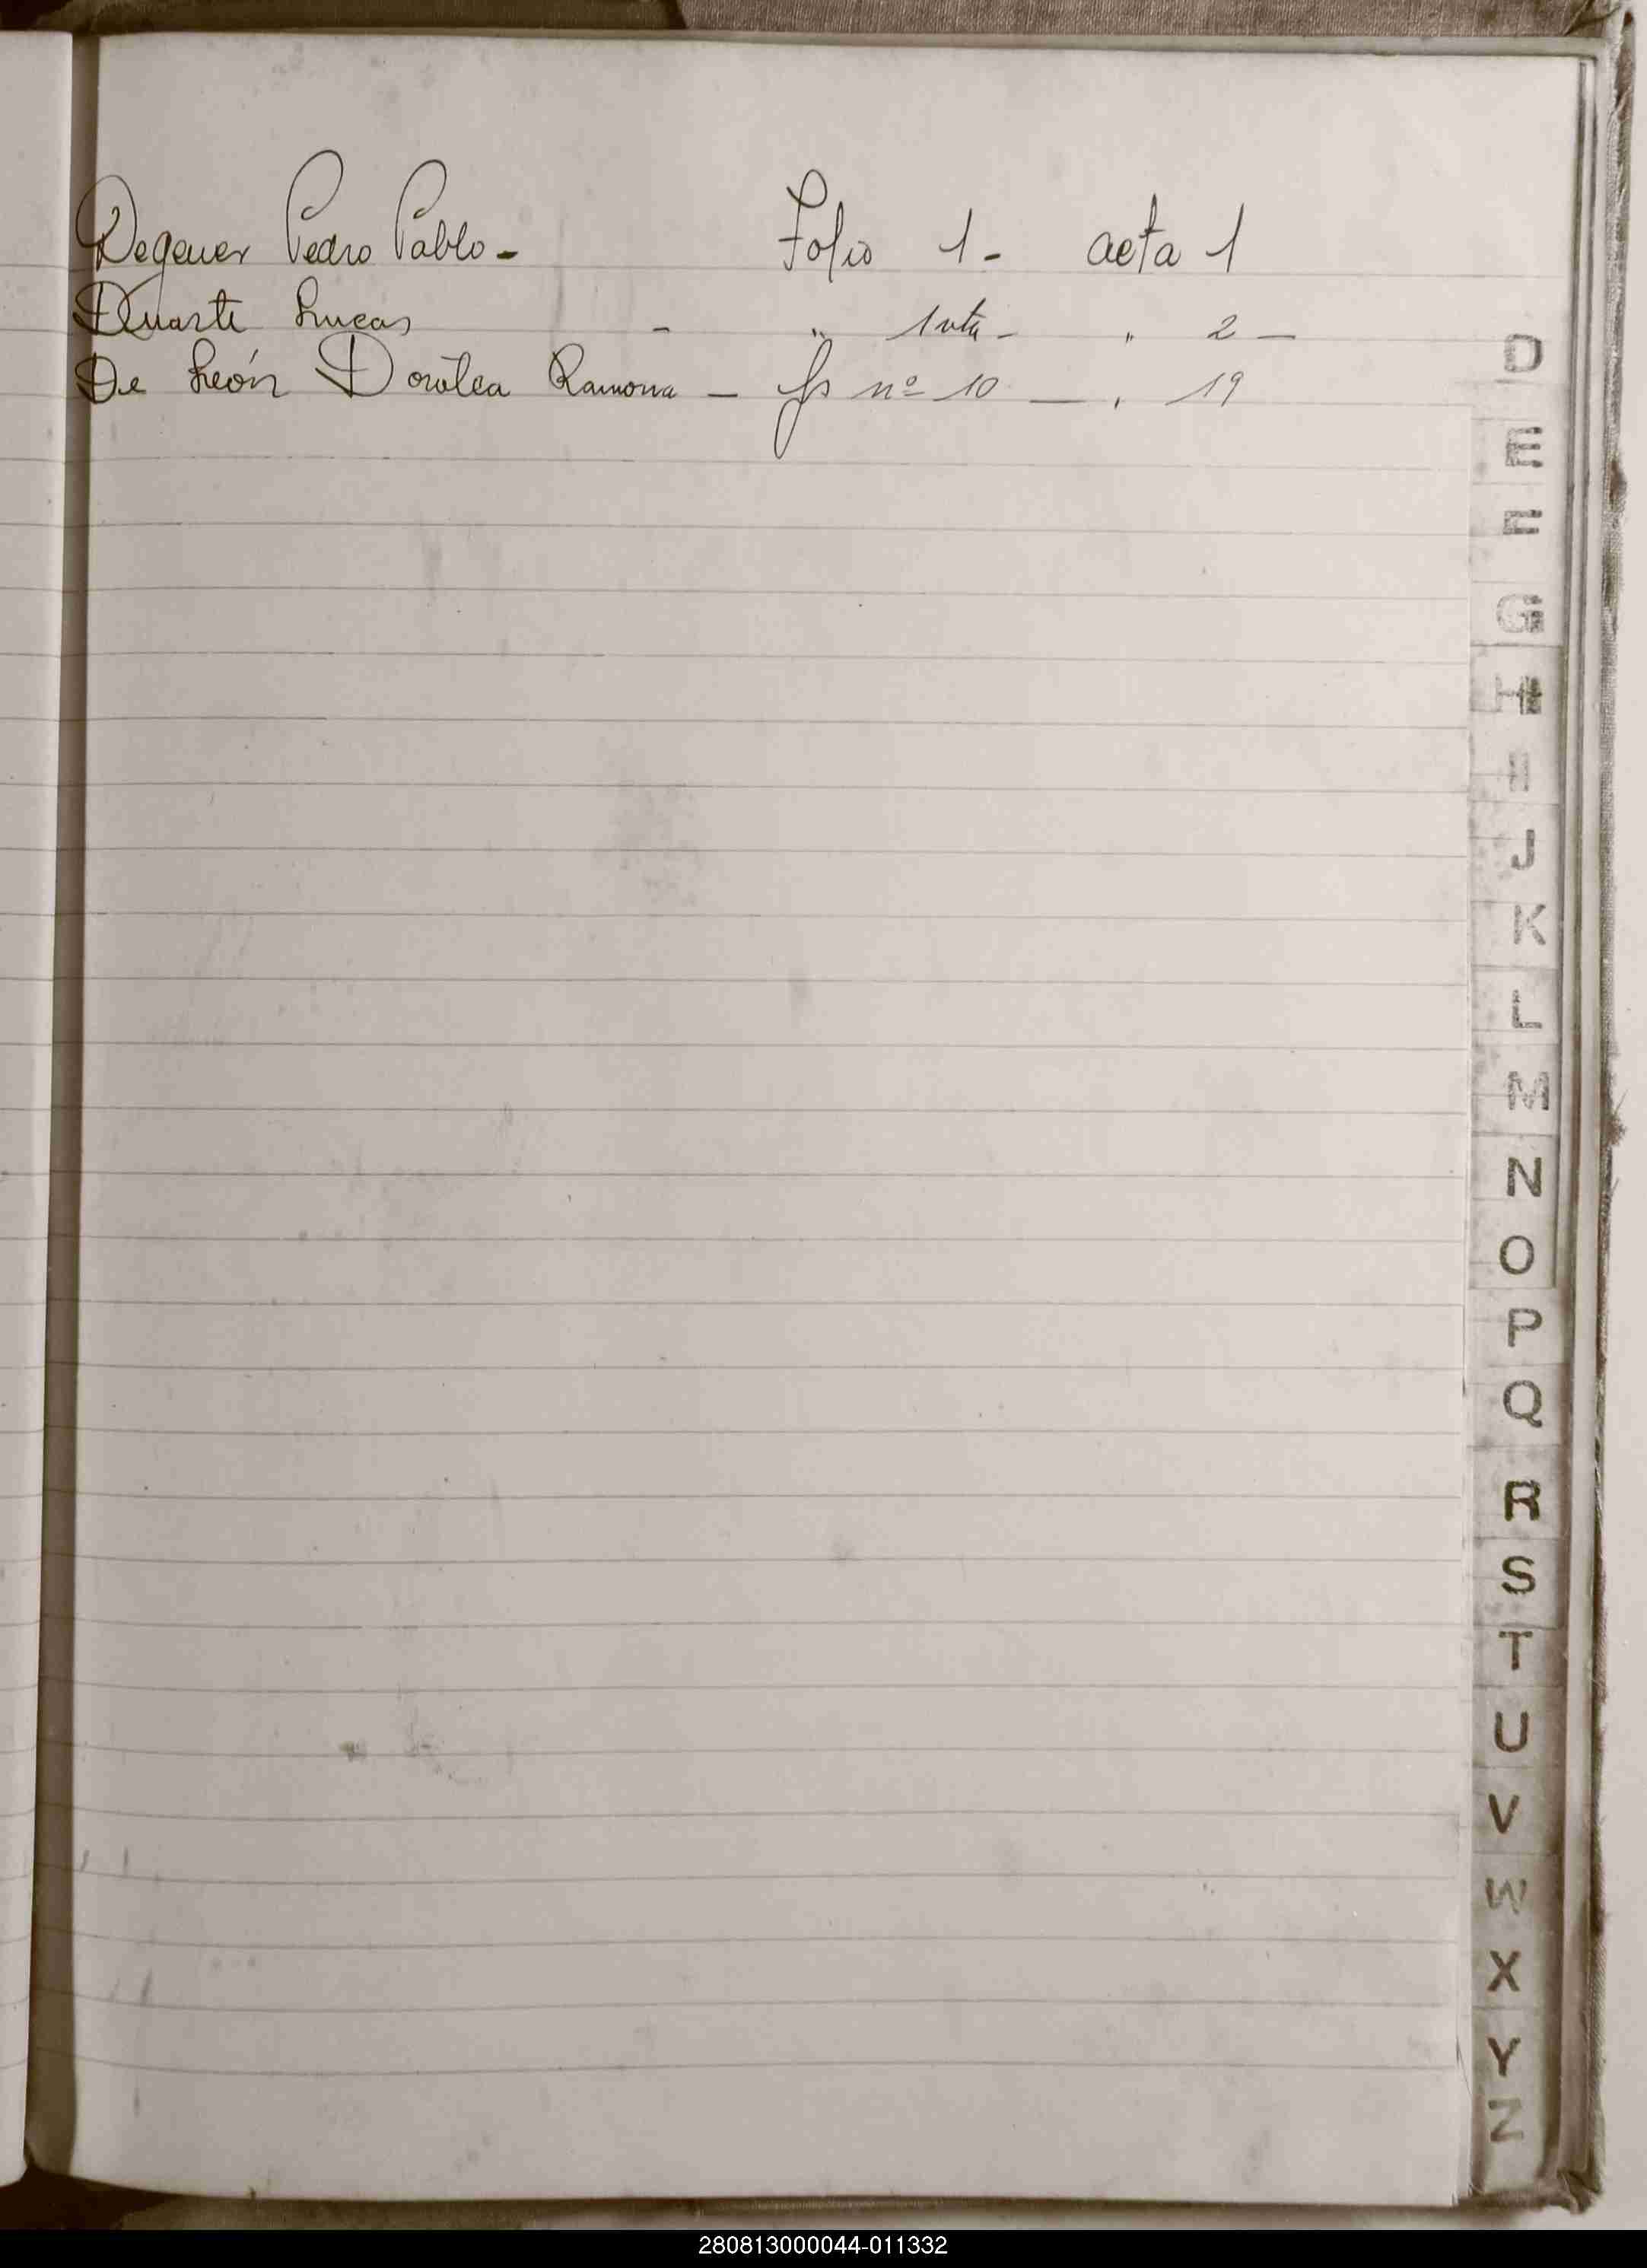 Degener Pedro Pablo - Folio 1 - acta 1
Duarte Lucas - " 1 vta - " 2 -
De León Dorotea Ramona - fs nº 10 - " 19
D
E
F
G
H
I
J
K
L
M
N
O
P
Q
R
S
T
U
V
W
X
Y
Z
280813000044-011332